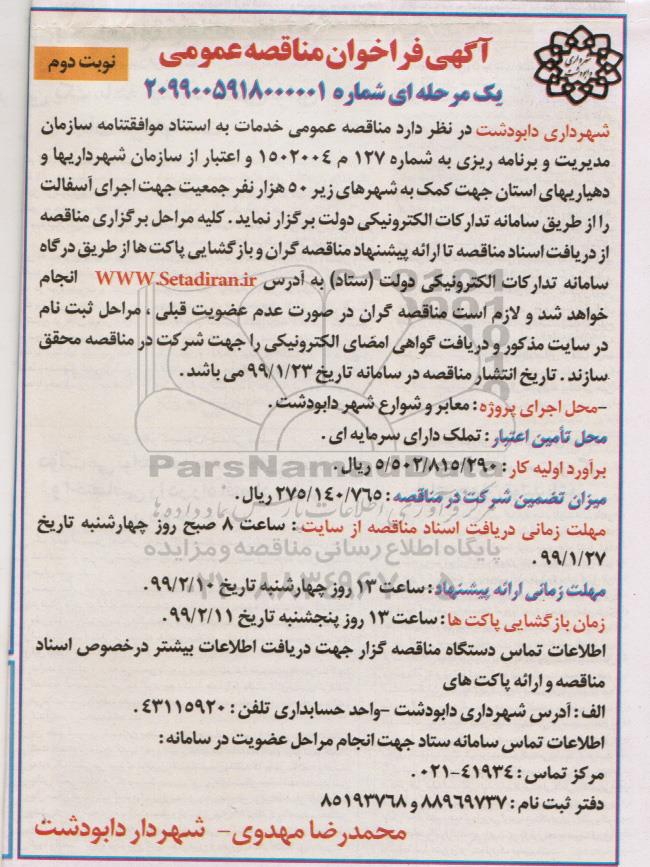 آگهی فراخوان مناقصه عمومی
نوبت دوم
یک مرحله ای شماره ۲۰۹۹۰۰۵۹۱۸۰۰۰۰۰۱
شهرداری دابودشت
شهرداری دابودشت در نظر دارد مناقصه عمومی خدمات به استناد موافقتنامه سازمان
مدیریت و برنامه ریزی به شماره ۱۲۷ م ۱۵۰۲۰۰۴ و اعتبار از سازمان شهرداریها و
دهیاریهای استان جهت کمک به شهرهای زیر ۵۰ هزار نفر جمعیت جهت اجرای آسفالت
را از طریق سامانه تدارکات الکترونیکی دولت برگزار نماید . کلیه مراحل برگزاری مناقصه
از دریافت اسناد مناقصه تا ارائه پیشنهاد مناقصه گران و بازگشایی پاکت ها از طریق درگاه
سامانه تدارکات الکترونیکی دولت (ستاد) به آدرس WWW.Setadiran.ir انجام
خواهد شد و لازم است مناقصه گران در صورت عدم عضویت قبلی ، مراحل ثبت نام
در سایت مذکور و دریافت گواهی امضای الکترونیکی را جهت شرکت در مناقصه محقق
سازند . تاریخ انتشار مناقصه در سامانه تاریخ ۹۹/۱/۲۳ می باشد .
-محل اجرای پروژه : معابر و شوارع شهر دابودشت .
محل تأمین اعتبار : تملک دارای سرمایه ای .
برآورد اولیه کار : ۵/۵۰۲/۸۱۵/۲۹۰ ریال .
ParsNamadData
میزان تضمین شرکت در مناقصه : ۲۷۵/۱۴۰/۷۶۵ ریال .
مهلت زمانی دریافت اسناد مناقصه از سایت : ساعت ۸ صبح روز چهارشنبه تاریخ
پایگاه اطلاع رسانی مناقصه و مزایده
۹۹/۱/۲۷ .
مهلت زمانی ارائه پیشنهاد : ساعت ۱۳ روز چهارشنبه تاریخ ۹۹/۲/۱۰ .
زمان بازگشایی پاکت ها : ساعت ۱۳ روز پنجشنبه تاریخ ۹۹/۲/۱۱ .
اطلاعات تماس دستگاه مناقصه گزار جهت دریافت اطلاعات بیشتر درخصوص اسناد
مناقصه و ارائه پاکت های
الف : آدرس شهرداری دابودشت -واحد حسابداری تلفن : ۴۳۱۱۵۹۲۰ .
اطلاعات تماس سامانه ستاد جهت انجام مراحل عضویت در سامانه :
مرکز تماس : ۴۱۹۳۴-۰۲۱ .
دفتر ثبت نام : ۸۸۹۶۹۷۳۷ و ۸۵۱۹۳۷۶۸
محمدرضا مهدوی- شهردار دابودشت